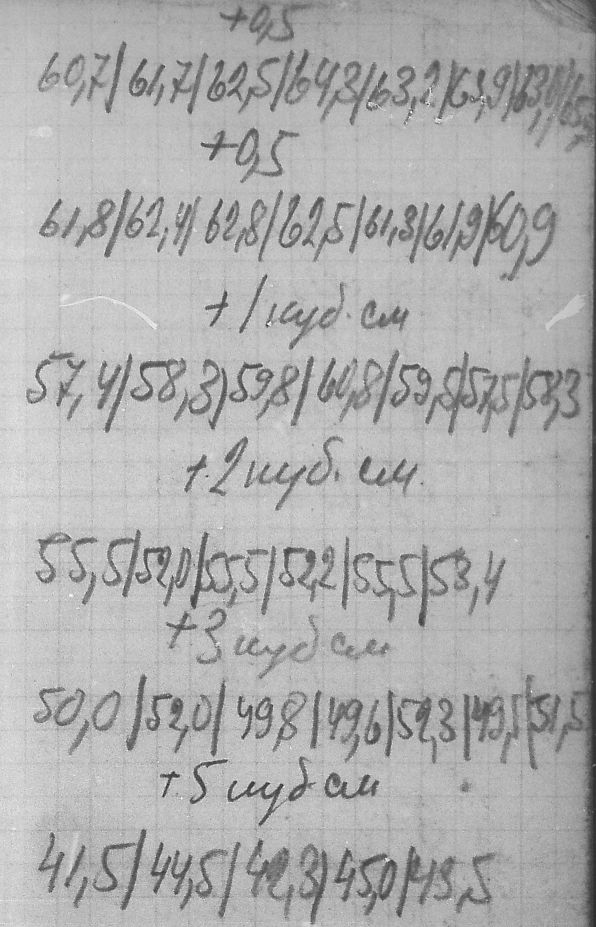 +0,5
60,7/ 61,7/ 62,5/ 64,3/ 63,2/ 63,9/ 63,0/
+0,5
61,8/ 62,4/ 62,8/ 62,5/ 61,3/ 61,9/ 60,9
+1 куб. см
57,4/ 58,3/ 59,8/ 60,8/ 59,5/ 57,5/ 58,3
+2 куб. см.
55,5/ 52,0/ 55,5/ 52,2/ 55,5/ 53,4
+3 куб см
50,0/ 52,0/ 49,8/ 49,6/ 52,3/ 49,5/ 51,5
+5 куб см
41,5/ 44,5/ 42,3/ 45,0/ 43,5